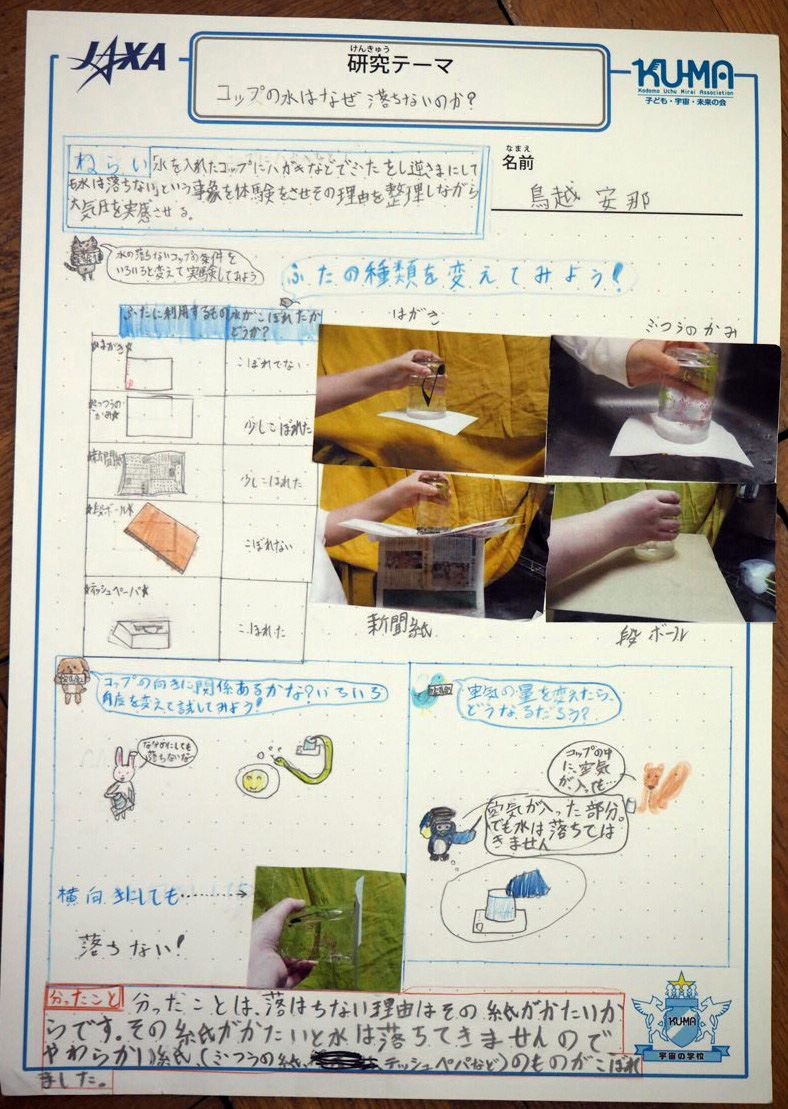 JAXA
けんきゅう
研究テーマ
コップの水はなぜ落ちないのか?
KU-MA
Kodomo Uchu Mirai Association
子ども・宇宙・未来の会
なまえ
名前
鳥越 安那
ねらい 「水を入れたコップにハガキなどでふたをし逆さまにして
も水は落ちない」という事象を体験をさせその理由を整理しながら
大気圧を実感させる。
水の落ちないコップの条件を
いろいろと変えて実験してみよう
ふたの種類を変えてみよう!
ふたに利用するもの 水がこぼれたか
どうか?
はがき
こぼれてない
ふつうの
かみ
少しこぼれた
新聞紙
少しこぼれた
段ボール
こぼれない
ティッシュペーパ
こぼれた
はがき
ふつうのかみ
新聞紙
段ボール
コップの向きに関係あるかな?いろいろ
角度を変えて試してみよう!
ななめにしても
落ちないな
横向きにしても……→
落ちない!
空気の量を変えたら、
どうなるだろう?
コップの中
に、空気
が入っても…
空気が入った部分。
でも水は落ちては
きません
分ったこと 分ったことは、落はちない理由はその紙がかたいか
らです。その紙がかたいと水は落ちてきませんので
やわらかい紙、(ふつうの紙、テッシュペパなど)のものがこぼれ
ました。
KUMA
宇宙の学校